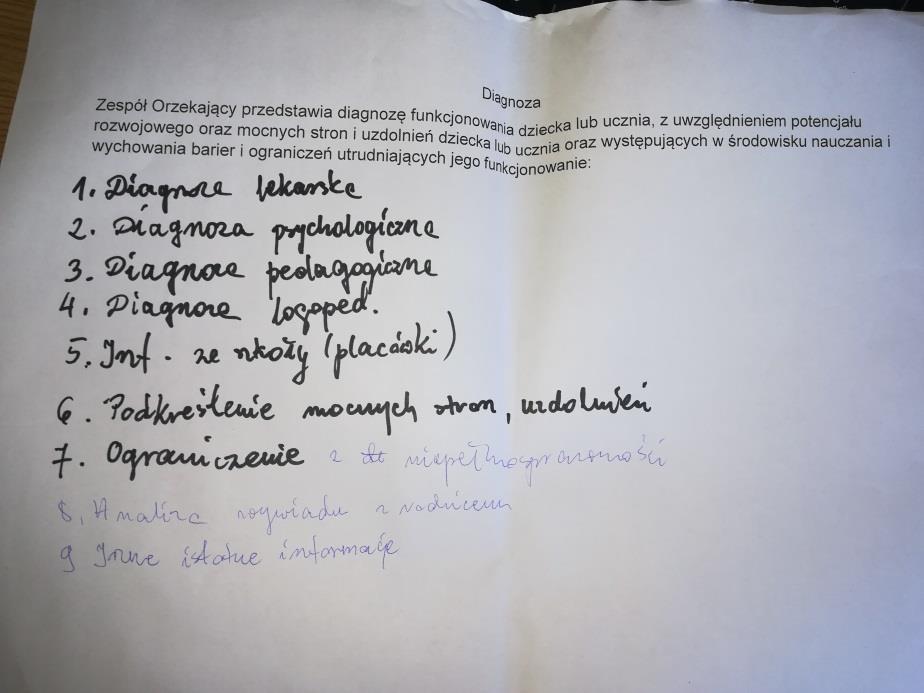 Diagnoza
Zespół Orzekający przedstawia diagnozę funkcjonowania dziecka lub ucznia, z uwzględnieniem potencjału
rozwojowego oraz mocnych stron i uzdolnień dziecka lub ucznia oraz występujących w środowisku nauczania i
wychowania barier i ograniczeń utrudniających jego funkcjonowanie:
1. Diagnoza lekarska
2. Diagnoza psychologiczna
3. Diagnoza pedagogiczna
4. Diagnoza logoped.
5. Inf. ze szkoły (placówki)
6. Podkreślenie mocnych stron, uzdolnień
7. Ograniczenie z niepełnosprawności
8. Analiza wywiadu z rodzicem
9 Inne istotne informacje